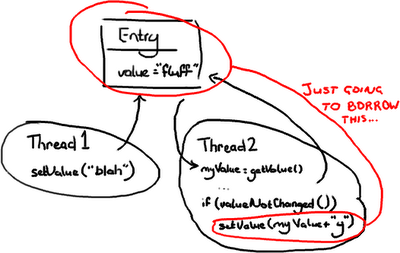 Entry
value="fluff"
JUST GOING
TO BORROW
THIS...
Thread 1
setValue("blah")
Thread 2
myValue=getValue()
...
if (valueNotChanged())
setValue(myValue+"y")